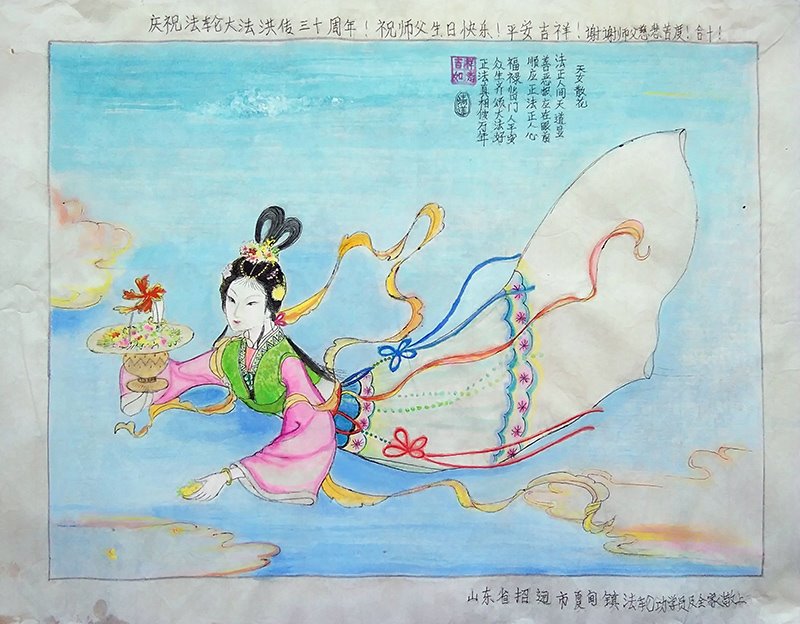 庆祝法轮大法洪传三十周年！祝师父生日快乐！平安吉祥！谢谢师父慈悲苦度！合十！
天女散花
法正人间天道显
善恶报应在眼前
顺应正法正人心
福禄临门人平安
众生齐颂大法好
正法真相传万年
吉祥如意
山东省招远市夏甸镇法轮功学员及全家敬上